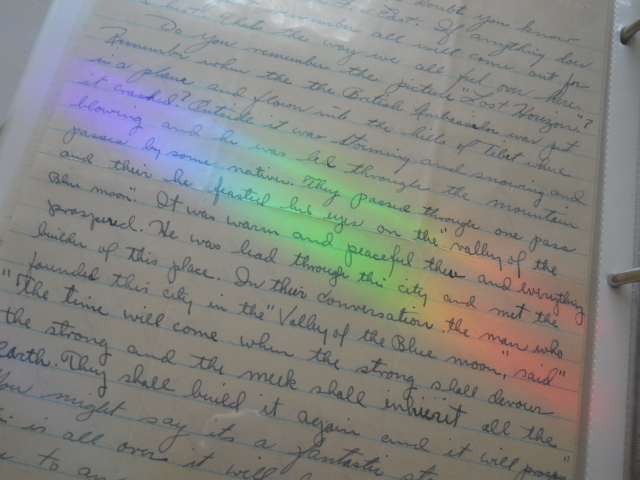 doubt you know
the East. If anything does
remember all will come out for
best. Thats the way we all feel over here.
Do you remember the picture "Lost Horizon"?
Remember when the the British Ambassador was put
in a plane and flown into the hills of Tibet where
it crashed? Outside it was storming and snowing and
blowing and he was led through the mountain
passes by some natives. They passed through one pass
and their he feasted his eyes on the "valley of the
Blue moon". It was warm and peaceful there and everything
prospered. He was lead through this city and met the
builder of this place. In their conversation the man who
founded this city in the "Valley of the Blue moon", said"
"The time will come when the strong shall devour
the strong and the meek shall inherit all the"
earth. They shall build it again and it will prosper"
You might say its a fantastic
is all over it will
to